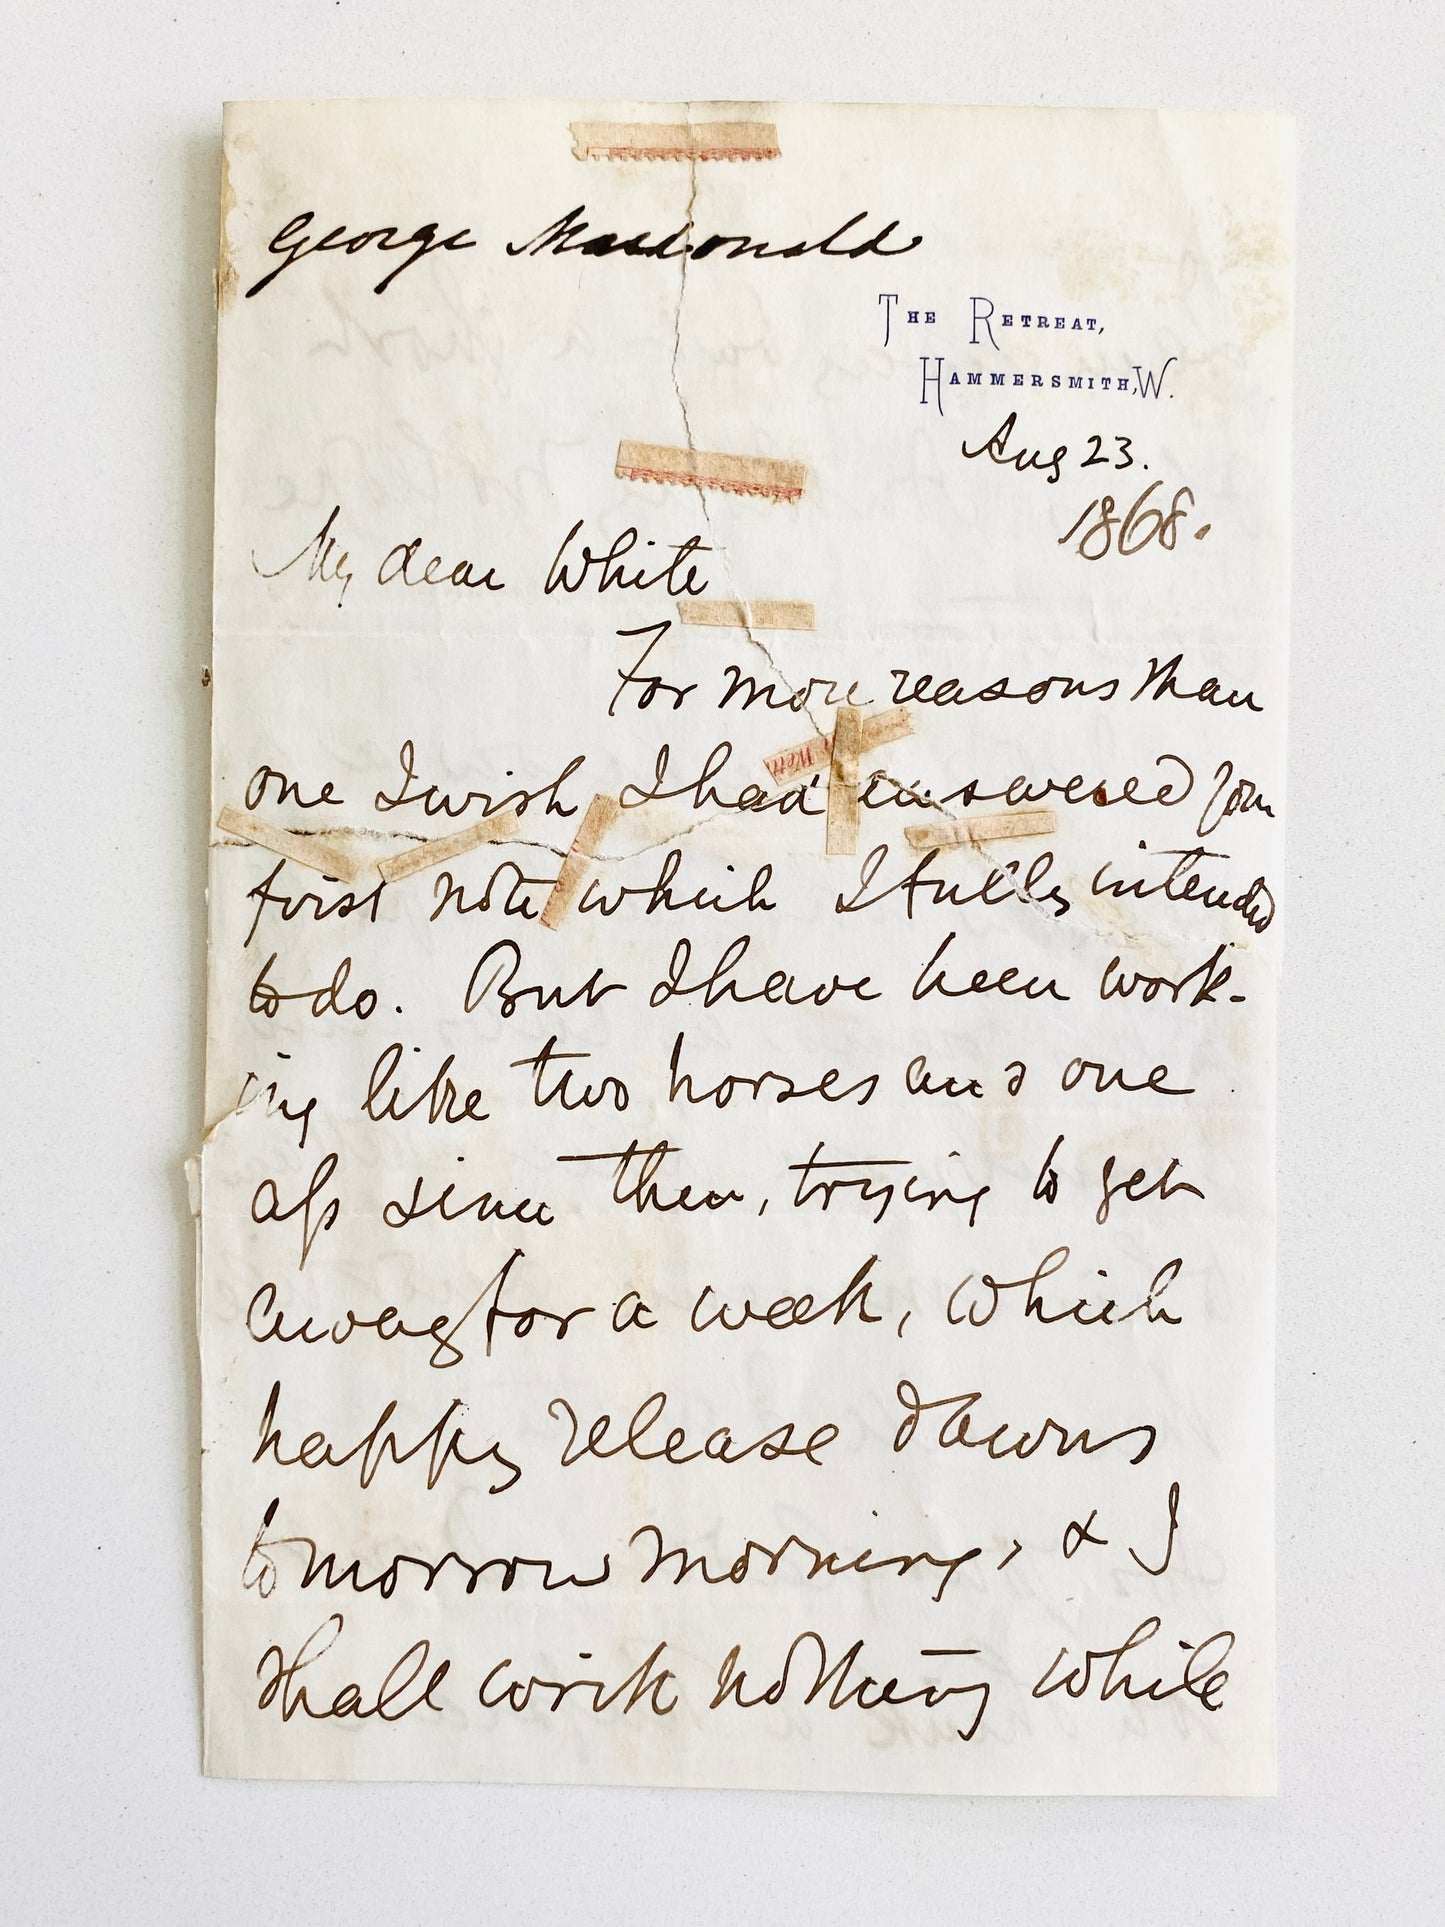 George Macdonald
THE RETREAT,
HAMMERSMITH, W.
Aug 23.
1868.
My dear White
For more reasons than
one I wish I had answered your
first note which I fully intended
to do. But I have been work-
ing like two horses and one
ass since then, trying to get
away for a week, which
happy release dawns
tomorrow morning, & I
shall write nothing while